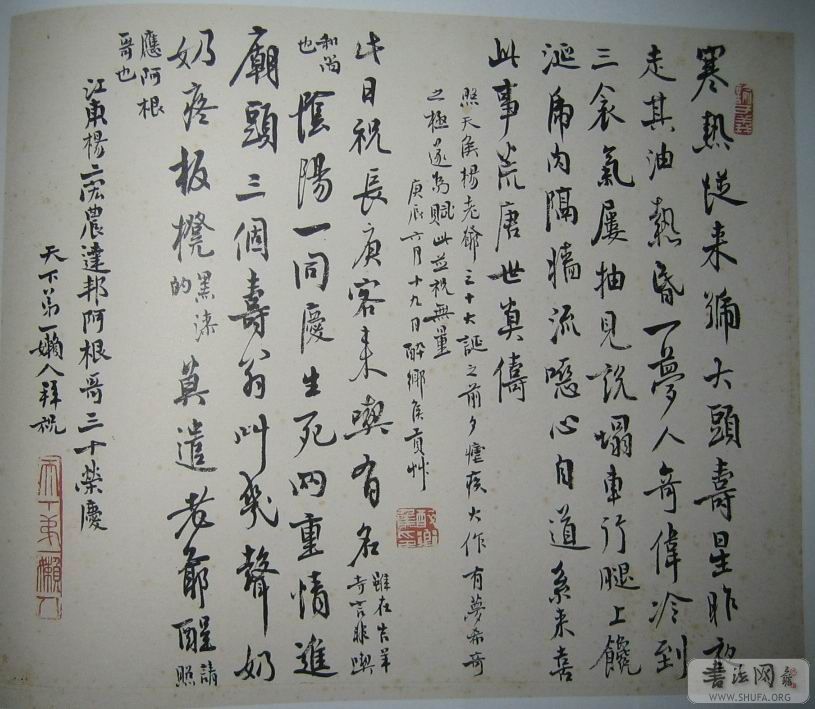 寒熱從來號大頭壽星昨夜
走其油熱昏一夢人奇偉冷到
三衾氣屢抽見說塌車行腿上饞
涎肉隔牆流噁心自道系來喜
此事荒唐世莫儔
照天侯楊老爺三十大誕之前夕瘧疾大作有夢希奇
之極遂為賦此並祝無量
庚辰六月十九日醉鄉侯貢艸
此日祝長庚客來喫有名
雖在吉羊
寺言非喫
和尚
也
陰陽一同慶生死兩重情進
廟頭三個壽翁叫幾聲奶
奶疼板櫈
黑漆
的
莫遣老爺醒
請
照
應阿根
哥也
江東楊宏農達邦阿根哥三十榮慶
天下第一嬾人拜祝
天下第一嬾人
書法网
WWW.SHUFA.ORG